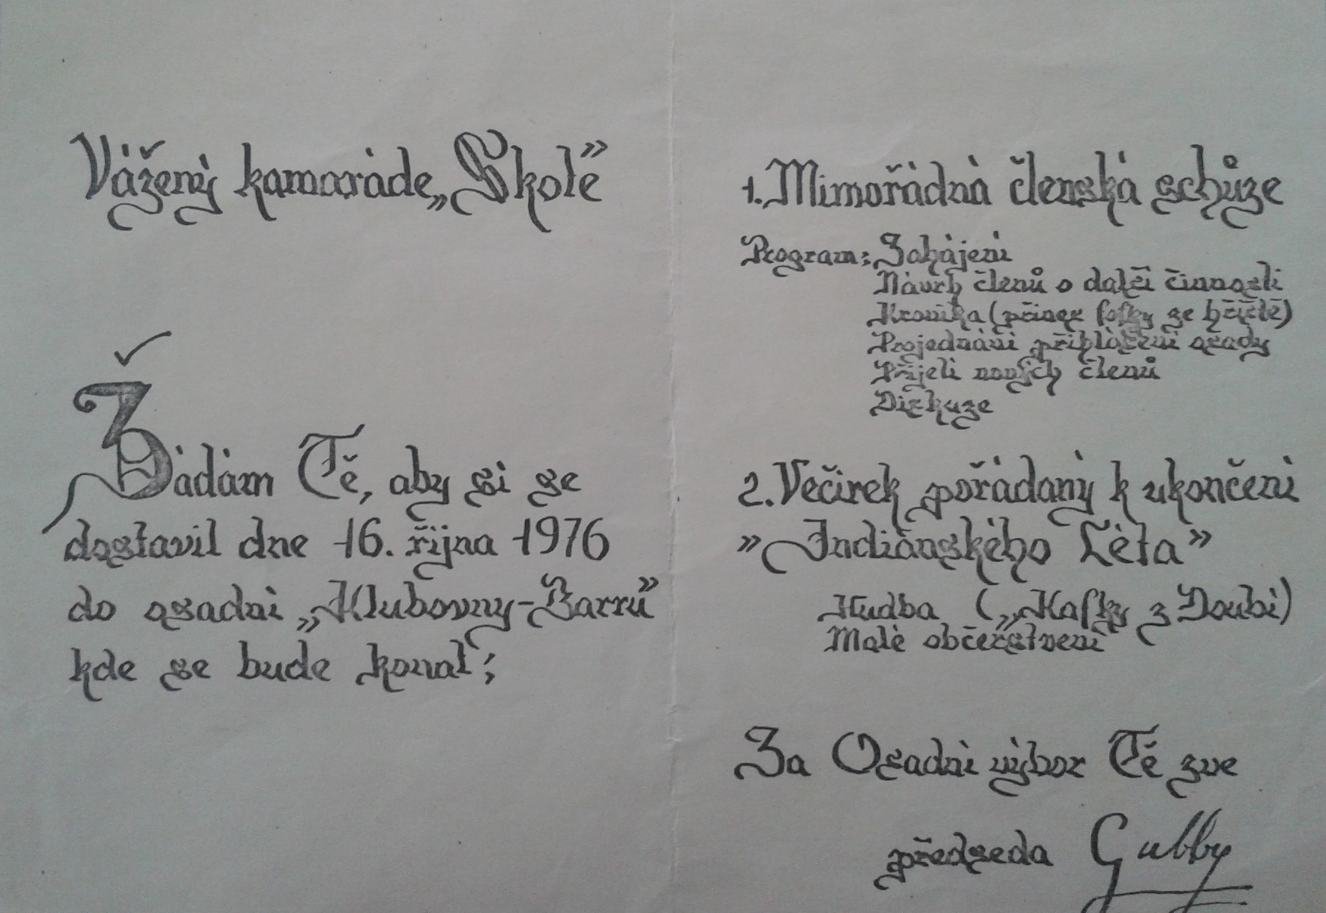 Vážený kamaráde „Skolé”
Žádám Tě, aby si se
dostavil dne 16. října 1976
do osadní „Klubovny-Barrů”
kde se bude konat;
1. Mimořádná členská schůze
Program: Zahájení
Návrh členů o další činnosti
Kronika (přines fotky ze hřiště)
Projednání přihlášení osady
Přijeti nových členů
Diskuze
2. Večírek pořádaný k ukončení
” Indiánského Léta”
Hudba („Kafky z Doubí)
Malé občerstvení
Za Osadní výbor Tě zve
předseda Gubby